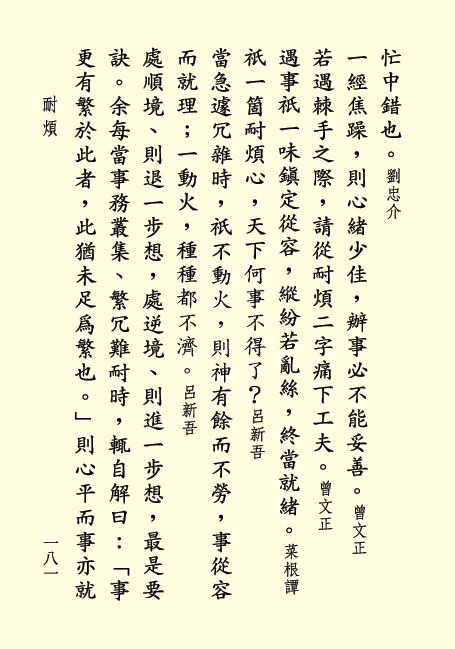 忙中錯也。劉忠介
一經焦躁，則心緒少佳，辦事必不能妥善。曾文正
若遇棘手之際，請從耐煩二字痛下工夫。曾文正
遇事祇一味鎮定從容，縱紛若亂絲，終當就緒。菜根譚
祇一箇耐煩心，天下何事不得了？呂新吾
當急遽冗雜時，祇不動火，則神有餘而不勞，事從容
而就理；一動火，種種都不濟。呂新吾
處順境、則退一步想，處逆境、則進一步想，最是要
訣。余每當事務叢集、繁冗難耐時，輒自解曰：「事
更有繁於此者，此猶未足爲繁也。」則心平而事亦就
耐煩
一八一